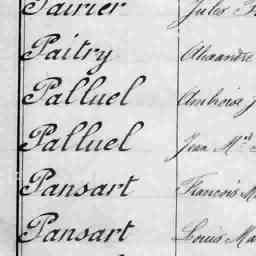 Pairier Jules
Paitry Alexandre
Palluel Ambroise J
Palluel Jean M.
Pansart François M
Pansart Louis Ma